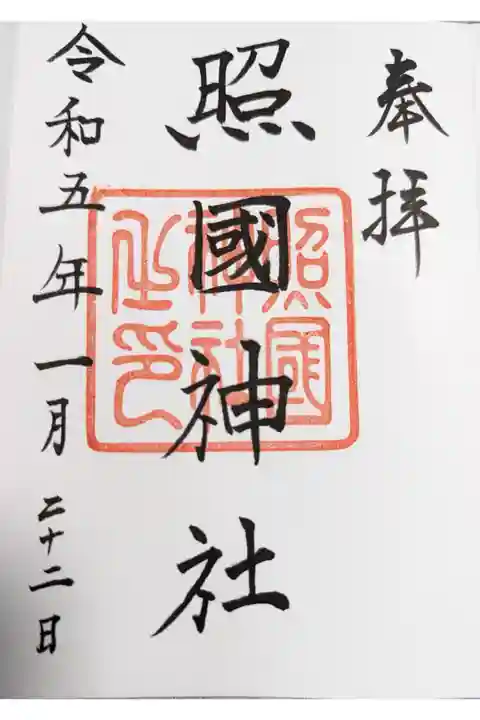 奉拝
照國神社
照國
神社
之印
令和五年一月二十二日